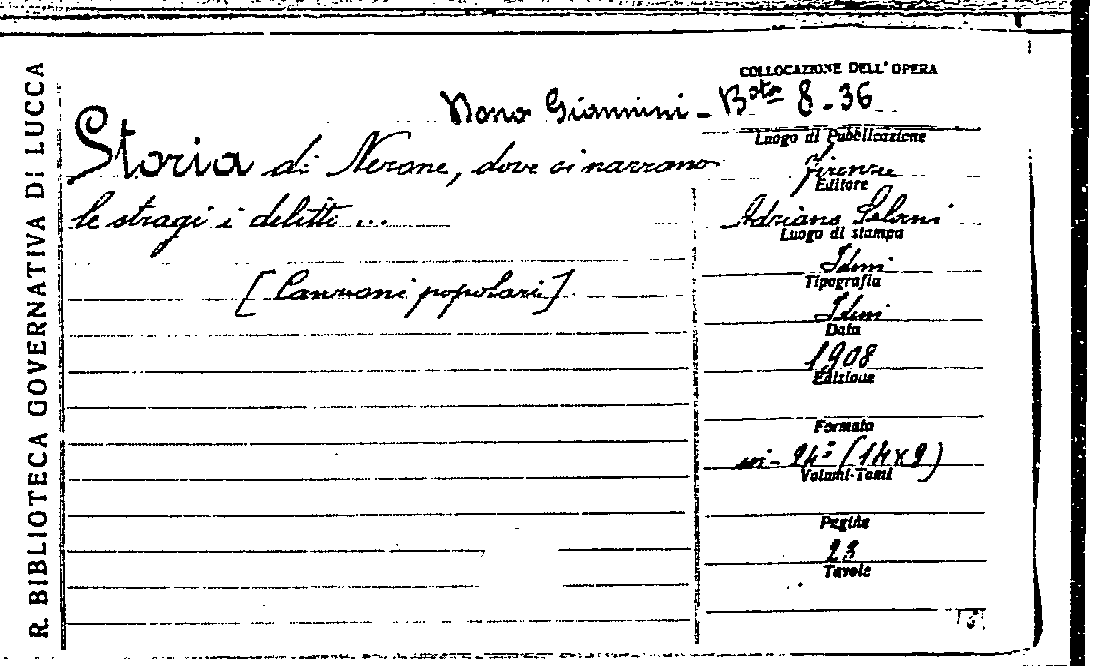 R. BIBLIOTECA GOVERNATIVA DI LUCCA
COLLOCAZIONE DELL' OPERA
Giannini - 8-36
Storia di Nerone, dove si narrano
le stragi i delitti ...
[Canzoni popolari]
Luogo di Pubblicazione
Firenze
Editore
Adriano Salani
Luogo di stampa
Idem
Tipografia
Idem
Data
1908
Edizione
Formato
in-24º (14x9)
Volumi-Tomi
Pagine
23
Tavole